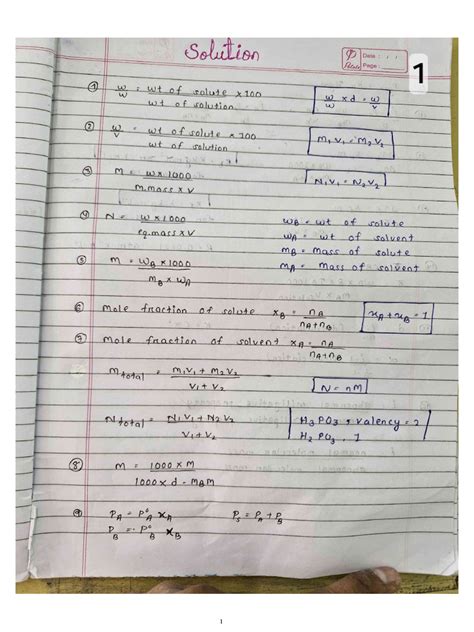 Solution
Date :
Page :
1
① w/w = wt of solute × 100 / wt of solution
w/w × d = w/v
② w/v = wt of solute × 100 / wt of solution
M₁V₁ = M₂V₂
③ M = w × 1000 / m.mass × V
N₁V₁ = N₂V₂
④ N = w × 1000 / eq.mass × V
wB = wt of solute
wA = wt of solvent
mB = mass of solute
mA = mass of solvent
⑤ m = wB × 1000 / mB × wA
⑥ mole fraction of solute xB = nA / nA+nB
xA + xB = 1
⑦ mole fraction of solvent xA = nA / nA+nB
M total = M₁V₁ + M₂V₂ / V₁ + V₂
N = nM
N total = N₁V₁ + N₂V₂ / V₁ + V₂
H₃PO₃, valency = 2
H₂PO₃ . 1
⑧ m = 1000 × M / 1000 × d = MBM
⑨ PA = P°A XA
PS = PA + PB
PB = P°B XB
1